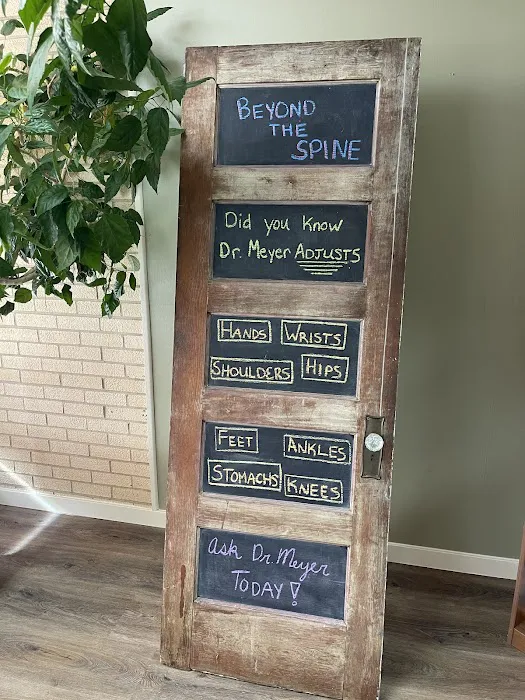 BEYOND
THE
SPINE
Did you know
Dr. Meyer ADJUSTS
HANDS WRISTS
SHOULDERS HIPS
FEET ANKLES
STOMACHS KNEES
Ask Dr. Meyer
TODAY!